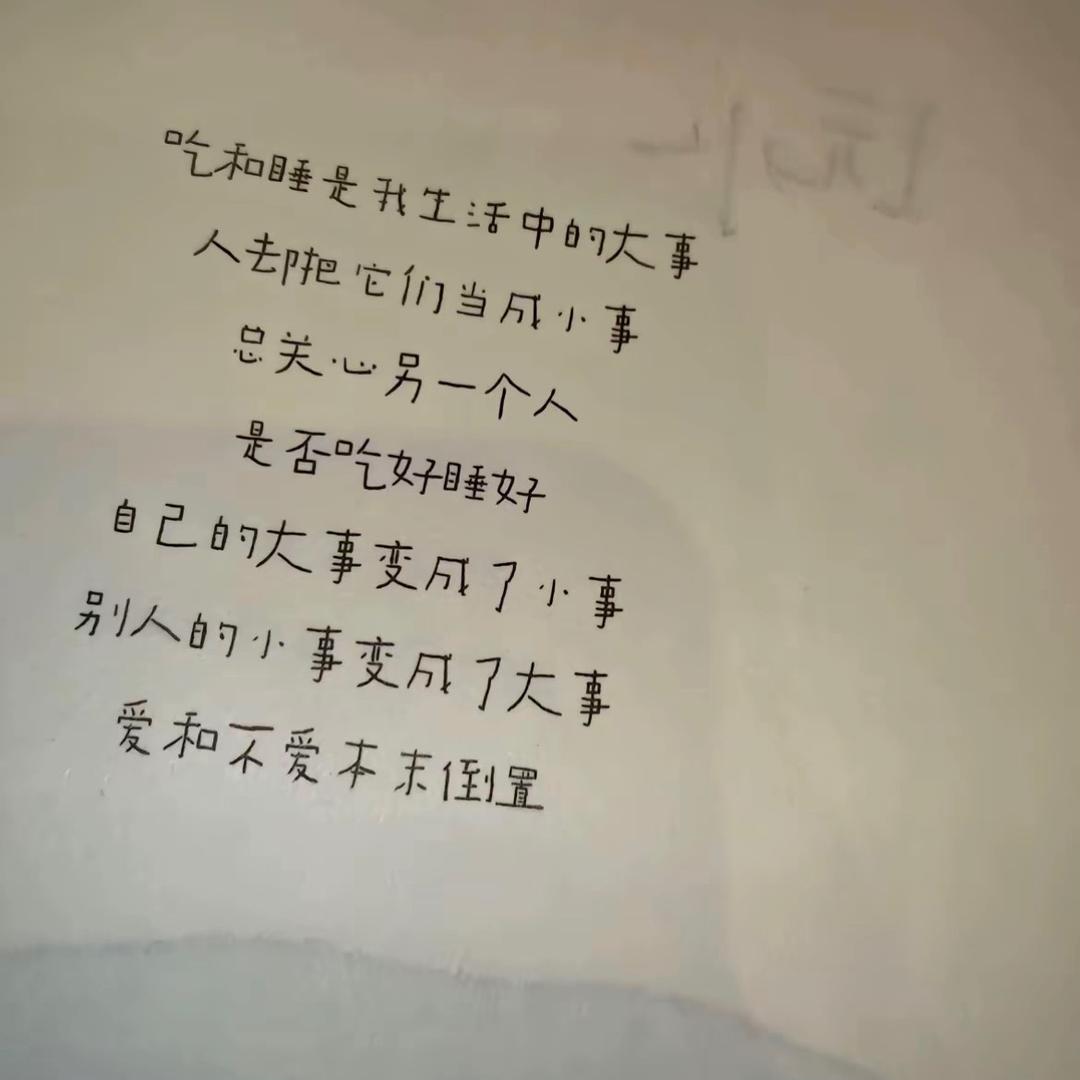 吃和睡是我生活中的大事
人却把它们当成小事
总关心另一个人
是否吃好睡好
自己的大事变成了小事
别人的小事变成了大事
爱和不爱本末倒置